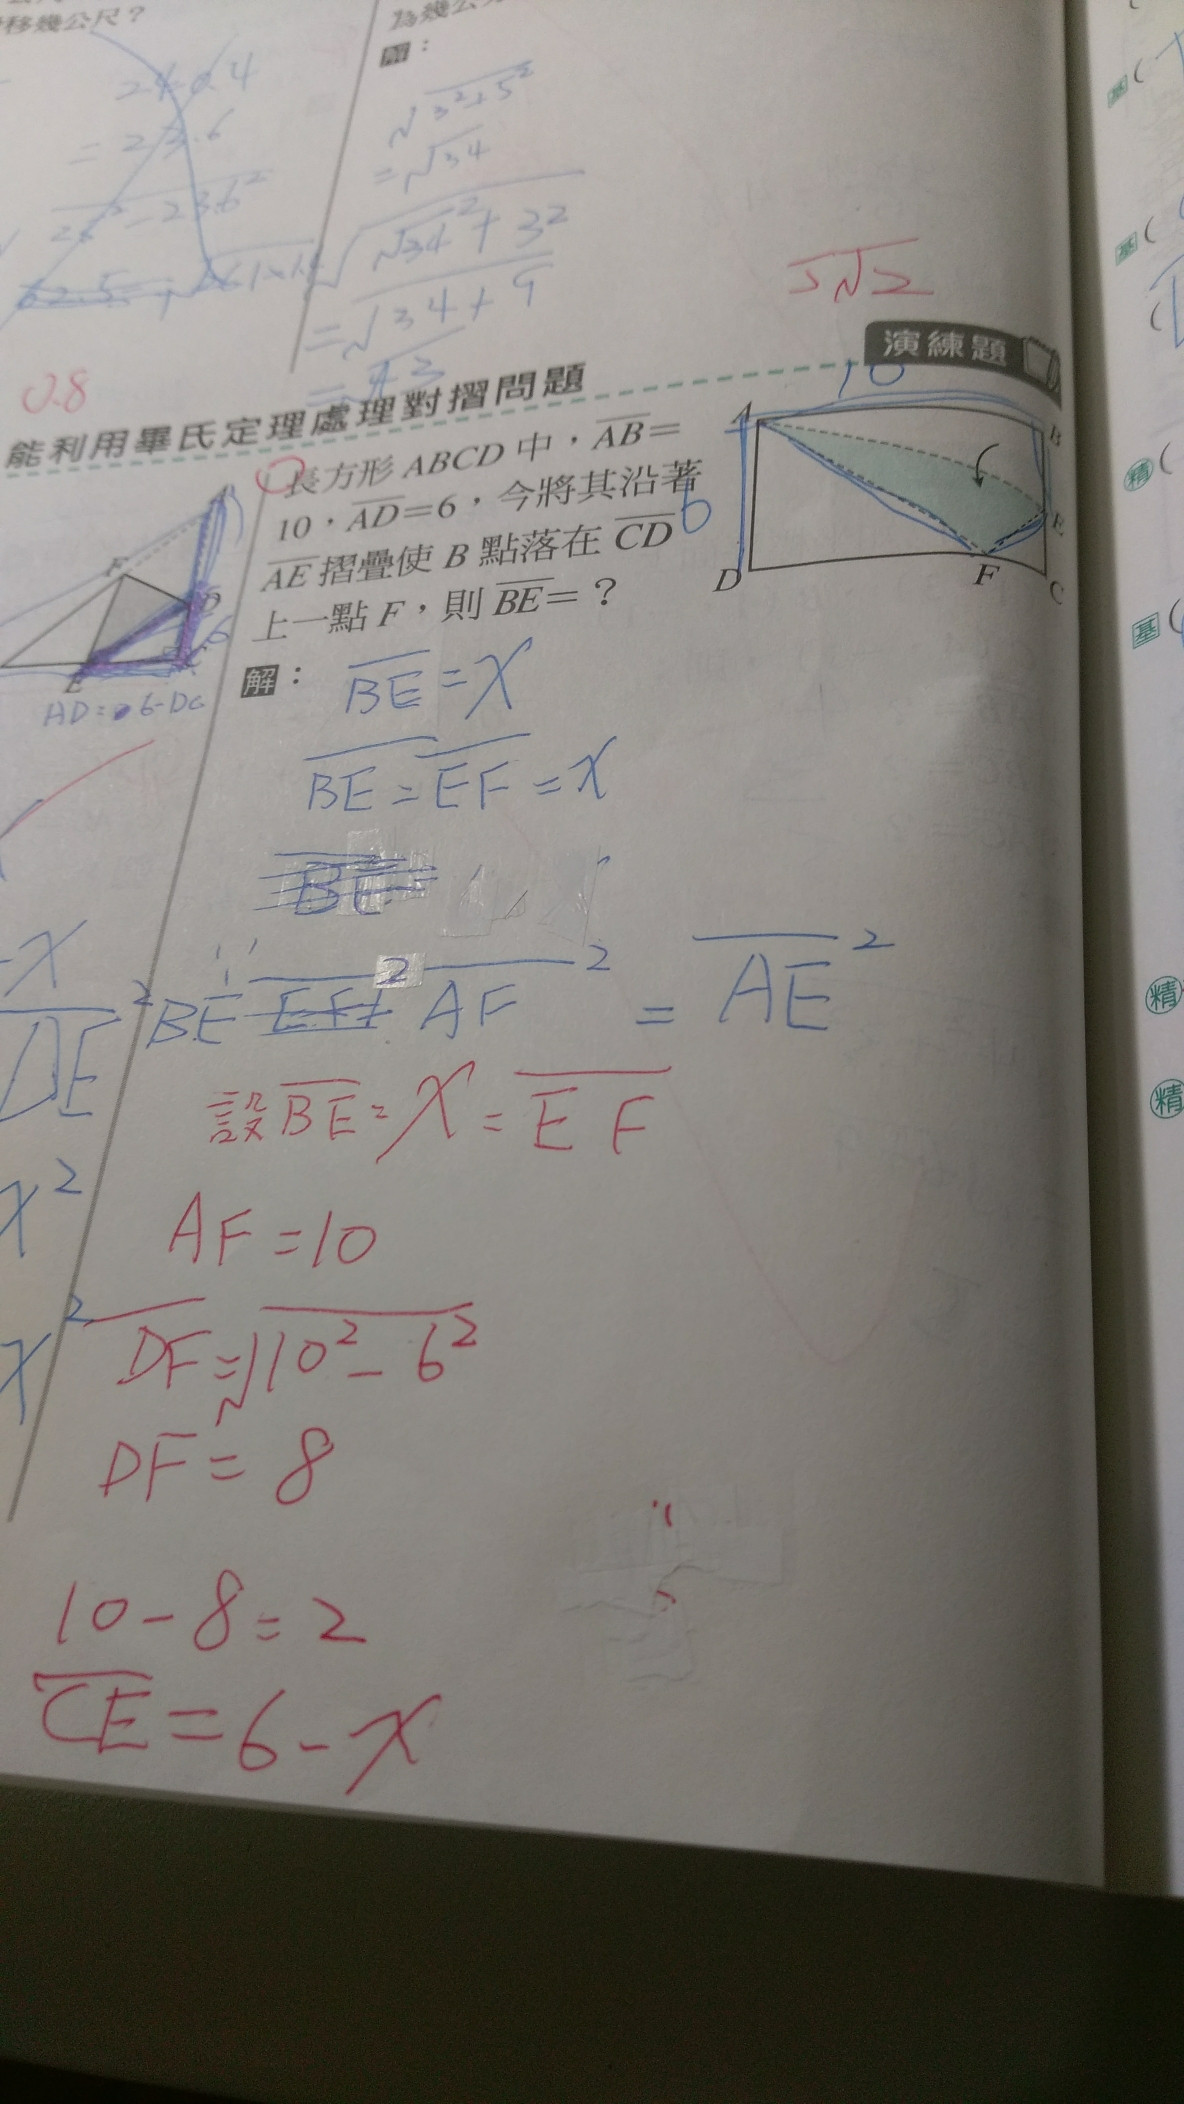 移幾公尺？
為幾公
解：
24-0.4
= 23.6
√3²+5²
=√34
√√34²+3²
=√34+9
=√43
5√2
0.8
演練題
能利用畢氏定理處理對摺問題
長方形 ABCD 中，AB=
10，AD=6，今將其沿著
AE 摺疊使 B 點落在 CD
上一點 F，則 BE=？
10
A
B
6
E
D
F
C
F
D
E
6
AD=6-DC
解：
BE=x
BE=EF=x
BE=
BE² AF² = AE²
設BE=x=EF
AF=10
DF=√10²-6²
DF=8
10-8=2
CE=6-x
-x
DE²
x²
x²
基(
基(
精(
基(
精
精